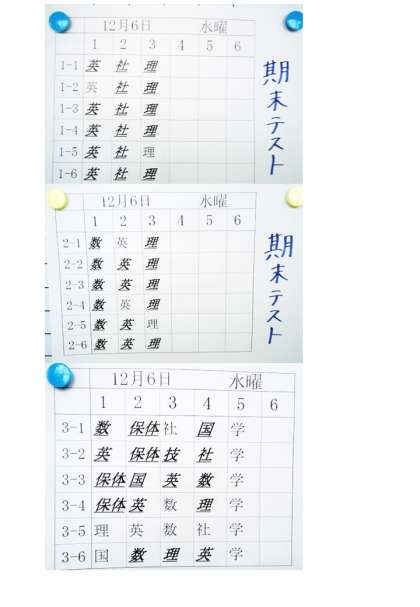 12月6日 水曜
1 2 3 4 5 6
1-1 英 社 理
1-2 英 社 理
1-3 英 社 理
1-4 英 社 理
1-5 英 社 理
1-6 英 社 理
期末テスト
12月6日 水曜
1 2 3 4 5 6
2-1 数 英 理
2-2 数 英 理
2-3 数 英 理
2-4 数 英 理
2-5 数 英 理
2-6 数 英 理
期末テスト
12月6日 水曜
1 2 3 4 5 6
3-1 数 保体 社 国 学
3-2 英 保体 技 社 学
3-3 保体 国 英 数 学
3-4 保体 英 数 理 学
3-5 理 英 数 社 学
3-6 国 数 理 英 学